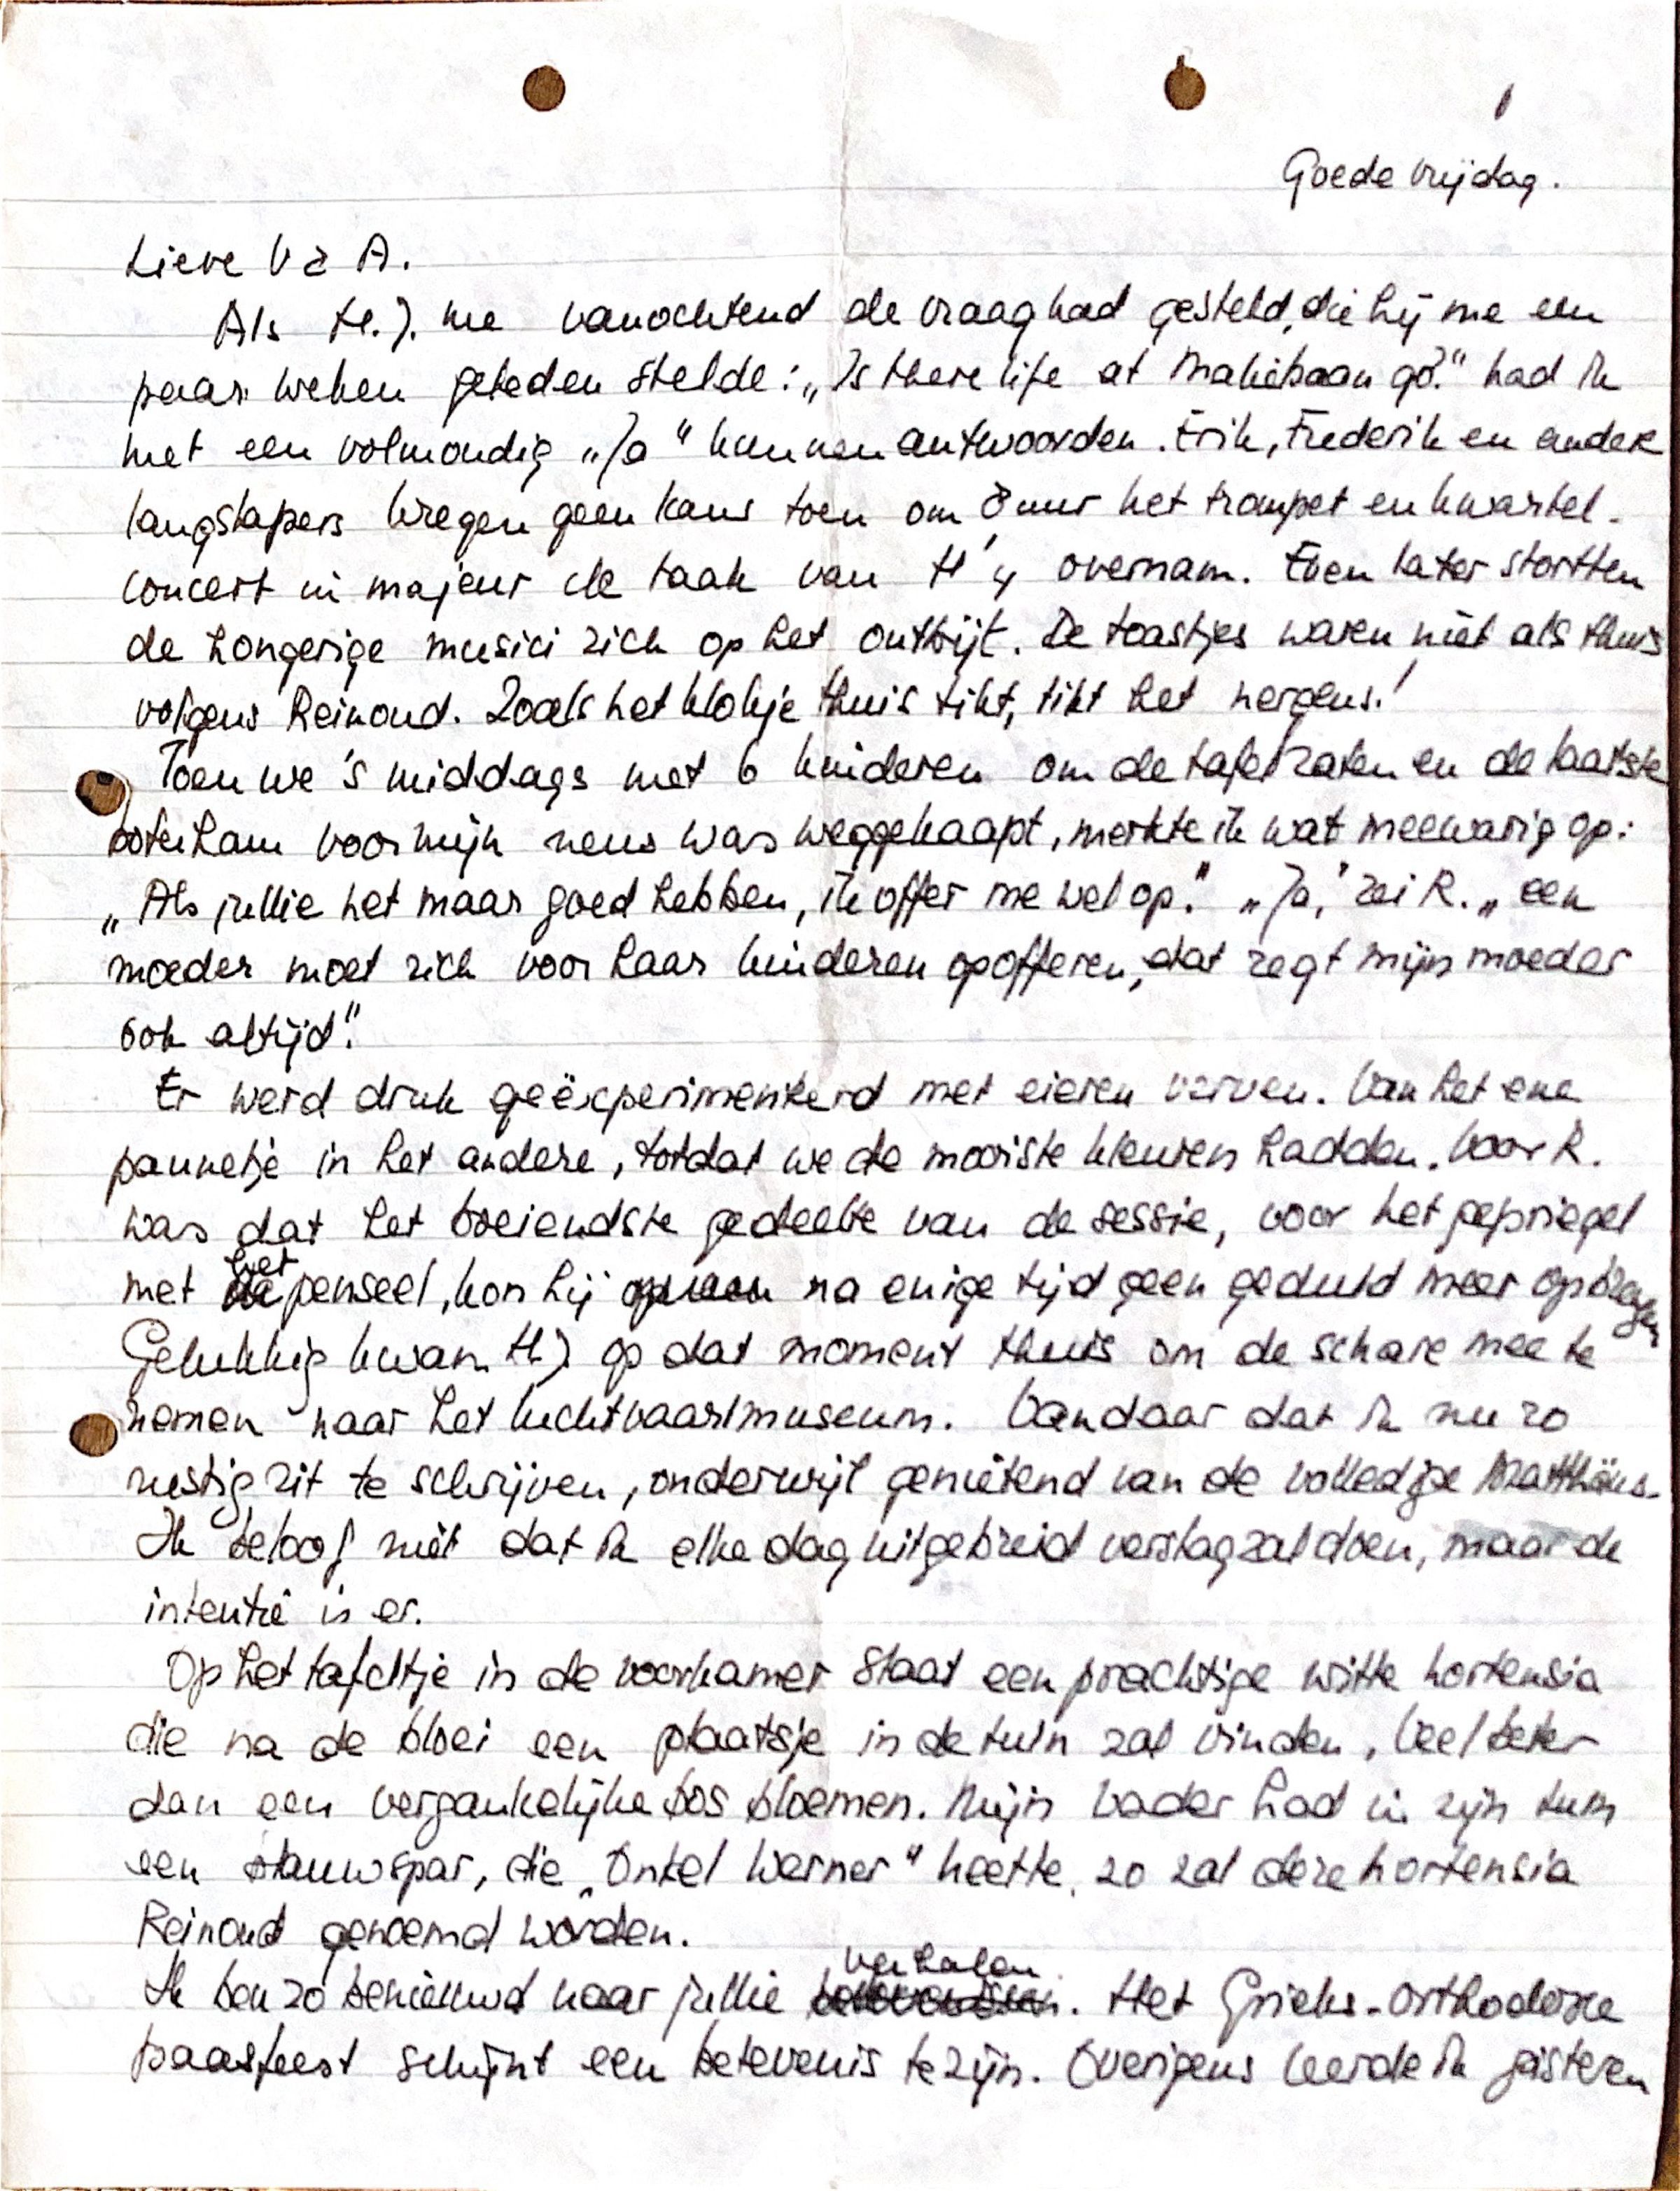 1
Goede Vrijdag.
Lieve V & A.
Als H.J. me vanochtend de vraag had gesteld, die hij me een
paar weken geleden stelde: „Is there life at Maliebaan 90?" had ik
met een volmondig „Ja" kunnen antwoorden. Erik, Frederik en andere
langslapers kregen geen kans toen om 8 uur het trompet en kwartel-
concert in majeur de taak van H'y overnam. Even later stortten
de hongerige musici zich op het ontbijt. De toastjes waren niet als thuis
volgens Reinoud. Zoals het klokje thuis tikt, tikt het nergens!
Toen we 's middags met 6 kinderen om de tafel zaten en de laatste
boterham voor mijn neus was weggekaapt, merkte ik wat meewarig op:
„Als jullie het maar goed hebben, ik offer me wel op." „Ja," zei R. „een
moeder moet zich voor haar kinderen opofferen, dat zegt mijn moeder
ook altijd."
Er werd druk geëxperimenteerd met eieren verven. Van het ene
pannetje in het andere, totdat we de mooiste kleuren hadden. Voor R.
was dat het boeiendste gedeelte van de sessie, voor het gepriegel
met het penseel, kon hij na enige tijd geen geduld meer opbrengen
Gelukkig kwam HJ op dat moment thuis om de schare mee te
nemen naar het luchtvaartmuseum. Vandaar dat ik nu zo
rustig zit te schrijven, onderwijl genietend van de volledige Matthäus.
Ik beloof niet dat ik elke dag uitgebreid verslag zal doen, maar de
intentie is er.
Op het tafeltje in de voorkamer staat een prachtige witte hortensia
die na de bloei een plaatsje in de tuin zal vinden, veel beter
dan een vergankelijke bos bloemen. Mijn vader had in zijn tuin
een blauwspar, die „Onkel Werner" heette, zo zal deze hortensia
Reinoud genoemd worden.
Ik ben zo benieuwd naar jullie verhalen. Het Grieks-orthodoxe
paasfeest schijnt een belevenis te zijn. Overigens leerde ik gisteren